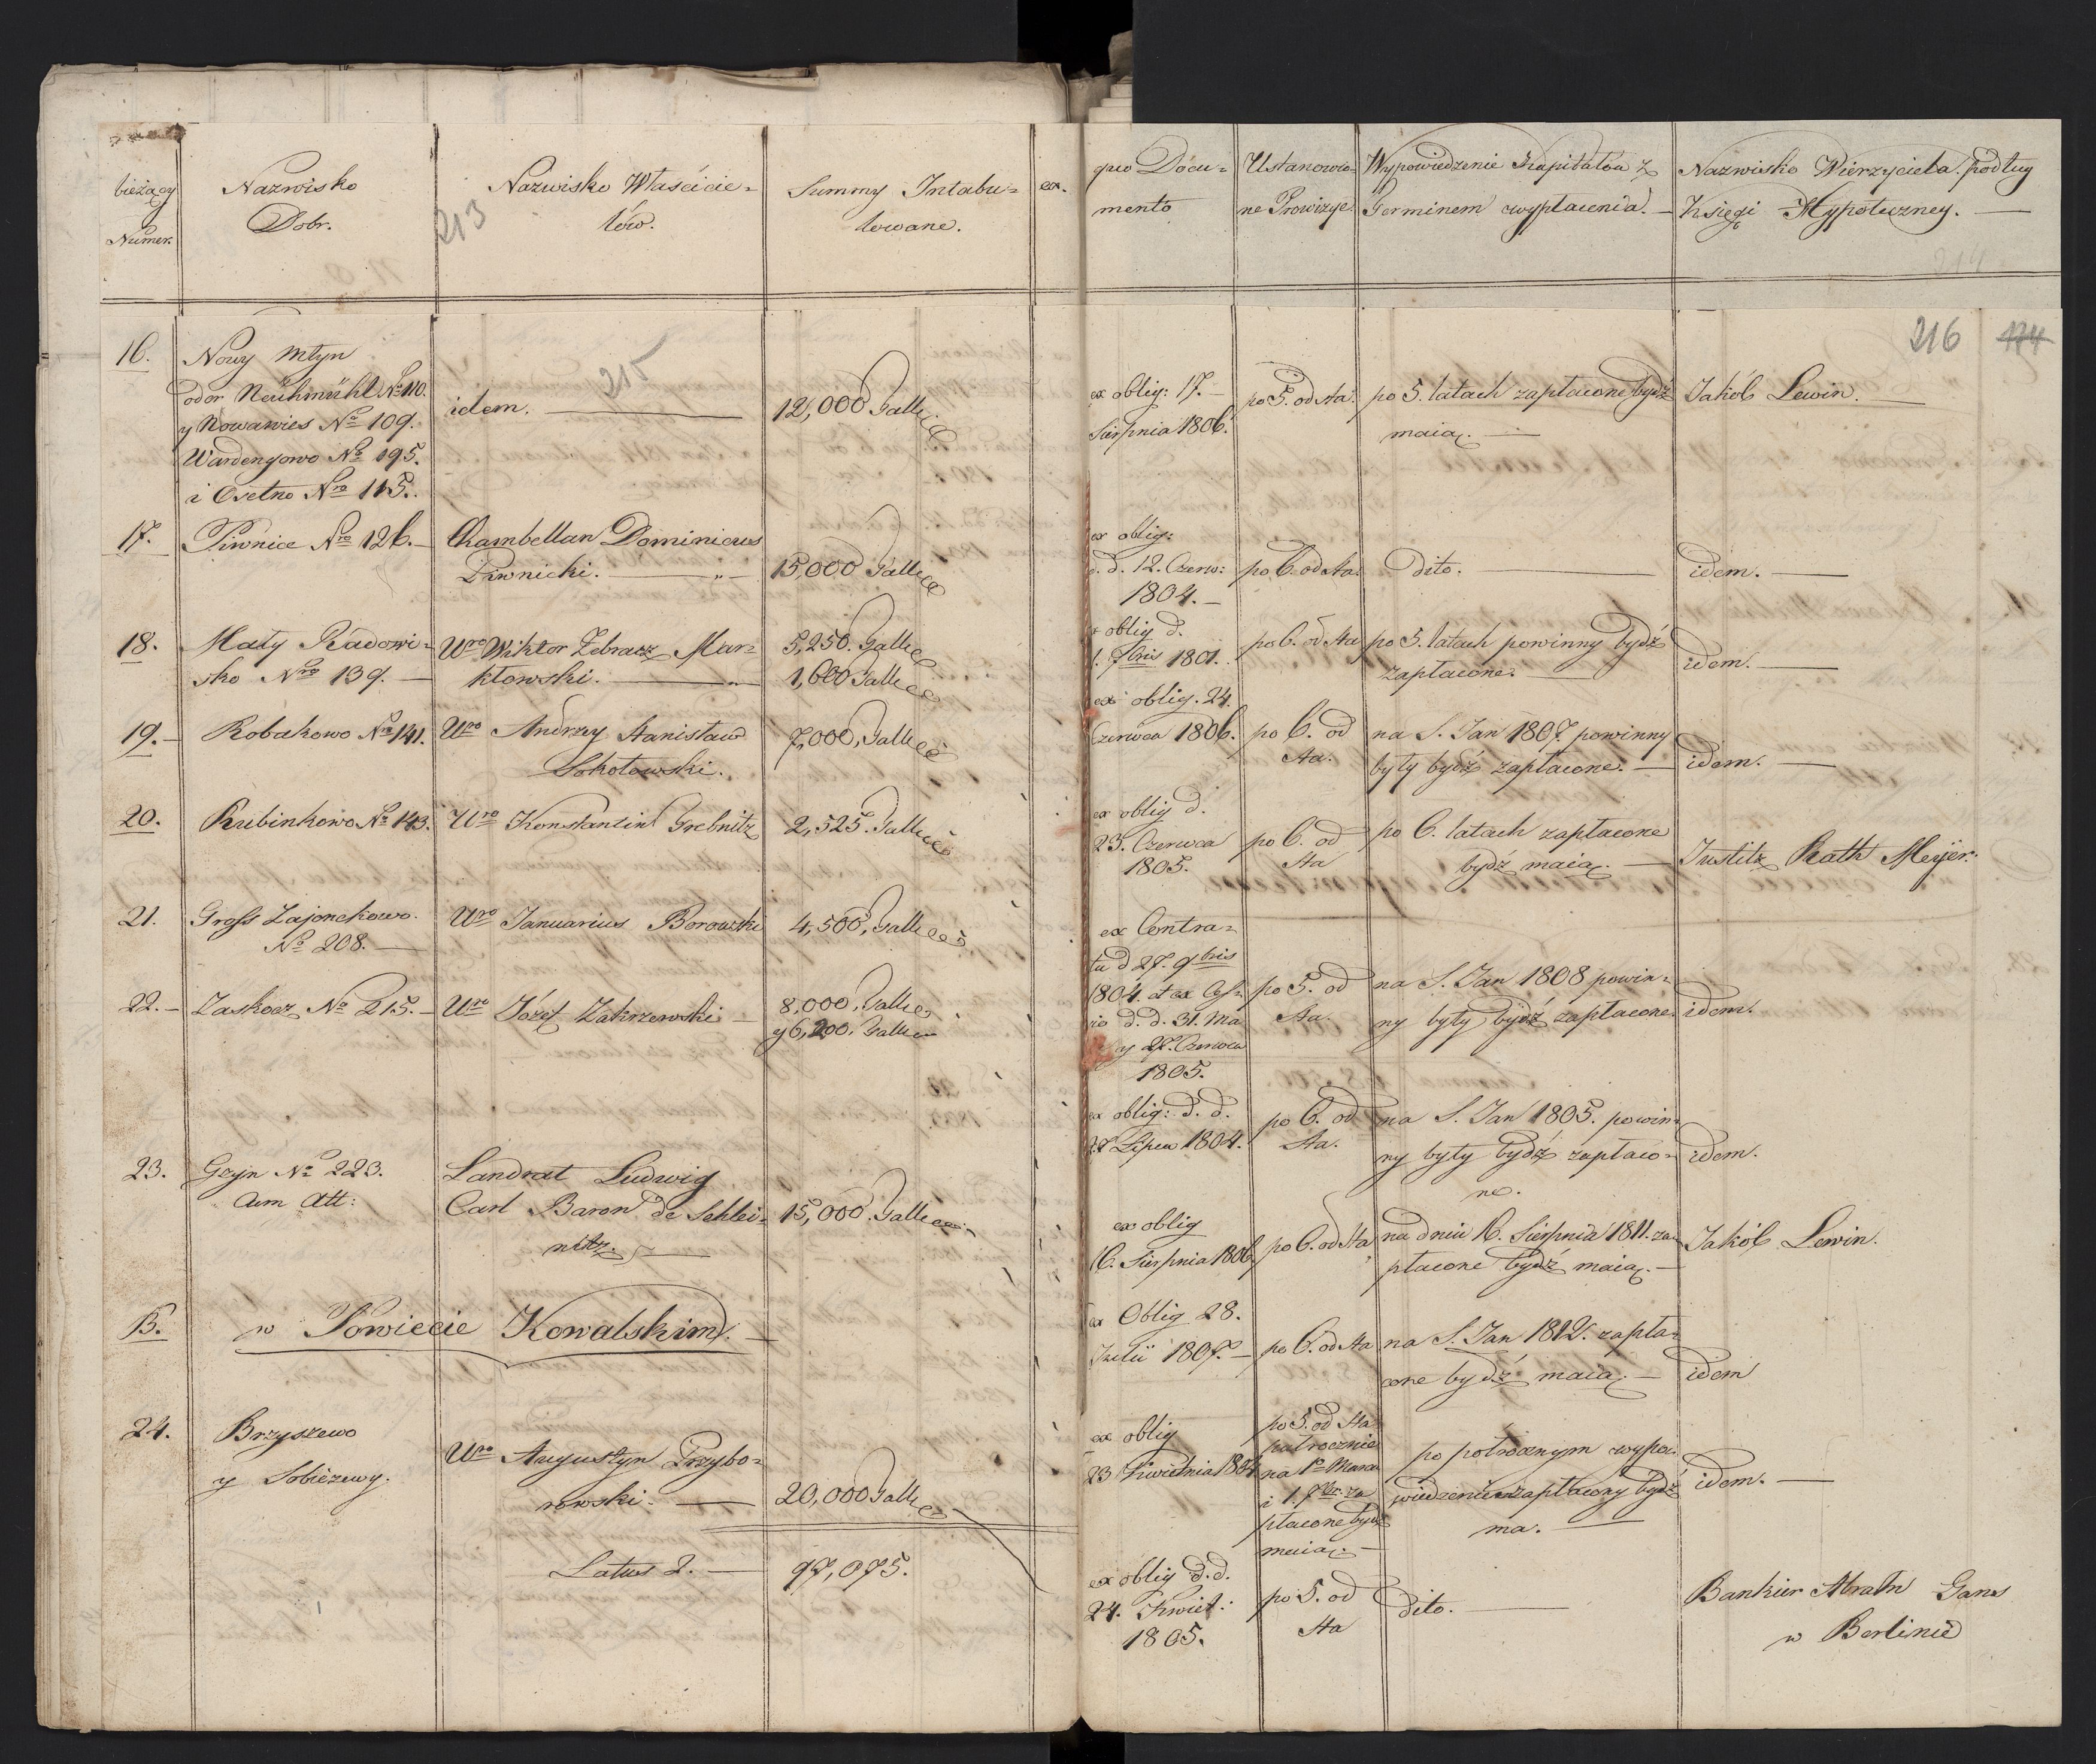 bieżący
Numer.
Nazwisko
Dobr.
213
Nazwisko Właścicie-
lów.
Summy Intabu-
lowane.
ex.
quo Docu-
mento
Ustanowio-
ne Prowizye.
Wypowiedzenie Kapitałów z
Terminem wypłacenia.
Nazwisko Wierzyciela podług
Księgi Hypoteczney.
216 174
215
16.
Nowy Młyn
oder Neuhmühl No 110.
y Nowawies No 109.
Wardengowo No 195.
i Osetno Nro 115.
idem.
12,000 Talle
17.
Piwnice Nro 126.
Chambellan Dominicus
Piwnicki.
15,000 Talle
18.
Mały Radowi-
sko Nro 139.
Uro Wiktor Zebracz Mar-
kłowski.
5,250. Talle
1,600 Talle
19.
Robakowo Nro 141.
Uro Andrzey Stanisław
Sokołowski.
7,000, Talle
20.
Rubinkowo No 143.
Uro Konstantin Grebnitz
2,525. Talle
21.
Gross Zajonckowo.
No 208.
Uro Januarius Borowski
4,500, Talle
22.
Zaskocz No 215.
Uro Józef Zakrzewski
8,000, Talle
y 6,200. Talle
23.
Gzyn No 223.
cum Att:
Landrat Ludwig
Carl Baron de Schlei-
nitz.
15,000. Talle
B.
w Powiecie Kowalskim.
24.
Brzyszewo
y Sobiczewy.
Uro Augustyn Przybo-
rowski.
20,000 Talle
Latus 2.
97,075.
ex oblig: 17.
Sierpnia 1806.
po 5. od Sta.
po 5. latach zapłacone bydź
maią.
Jakób Lewin.
ex oblig:
d. d. 12. Czerw:
1804.
po 6. od Sta.
dito.
idem.
oblig d.
1. 7bris 1801.
po 6. od Sta
po 5. latach powinny bydź
zapłacone.
idem.
ex oblig. 24.
Czerwca 1806.
po 6. od
Sta.
na S. Jan 1807. powinny
były bydź zapłacone.
idem.
ex oblig d.
23. Czerwca
1805.
po 6. od
Sta
po 6. latach zapłacone
bydź maią.
Justitz Rath Meyer.
ex Contra-
tu d 27. 9bris
1804. et ex
d. d. 31. Ma
y 27. Czerwca
1805.
po 5. od
Sta.
na S. Jan 1808 powin-
ny były bydź zapłacone.
idem.
ex oblig: d. d.
27 Lipca 1804.
po 6. od
Sta.
na S. Jan 1805. powin-
ny były bydź zapłaco-
ne.
idem.
ex oblig
16. Sierpnia 1806
po 6. od Sta
na dniu 16. Sierpnia 1811. za-
płacone bydź maią.
Jakób Lewin.
ex Oblig 28.
Julii 1807.
po 6. od Sta
na S. Jan 1812. zapła-
cone bydź maią.
idem
ex oblig
23 Kwietnia 1804
po 5. od Sta
połrocznie
na 1o Marca
i 1. 7br. za
płacone bydź
maią.
po połrocznym wypo-
wiedzeniu zapłacony bydź
ma.
idem.
ex oblig d.d.
24. Kwiet:
1805.
po 5. od
Sta
dito.
Bankier Abrahn Gans
w Berlinie